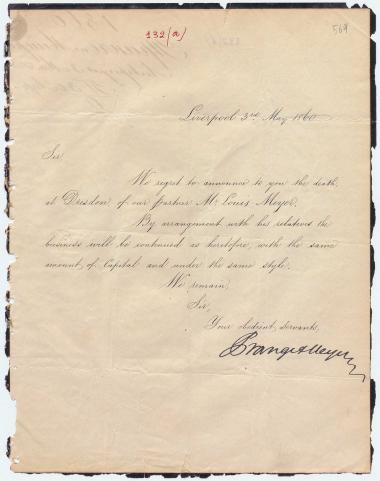 132(a)
569
Liverpool 3rd May 1860
Sir,
We regret to announce to you the death,
at Dresden, of our partner Mr. Louis Meyer.
By arrangement with his relatives the
business will be continued as heretofore, with the same
amount of Capital and under the same style.
We remain,
Sir,
Your obedient servants,
Prange & Meyer